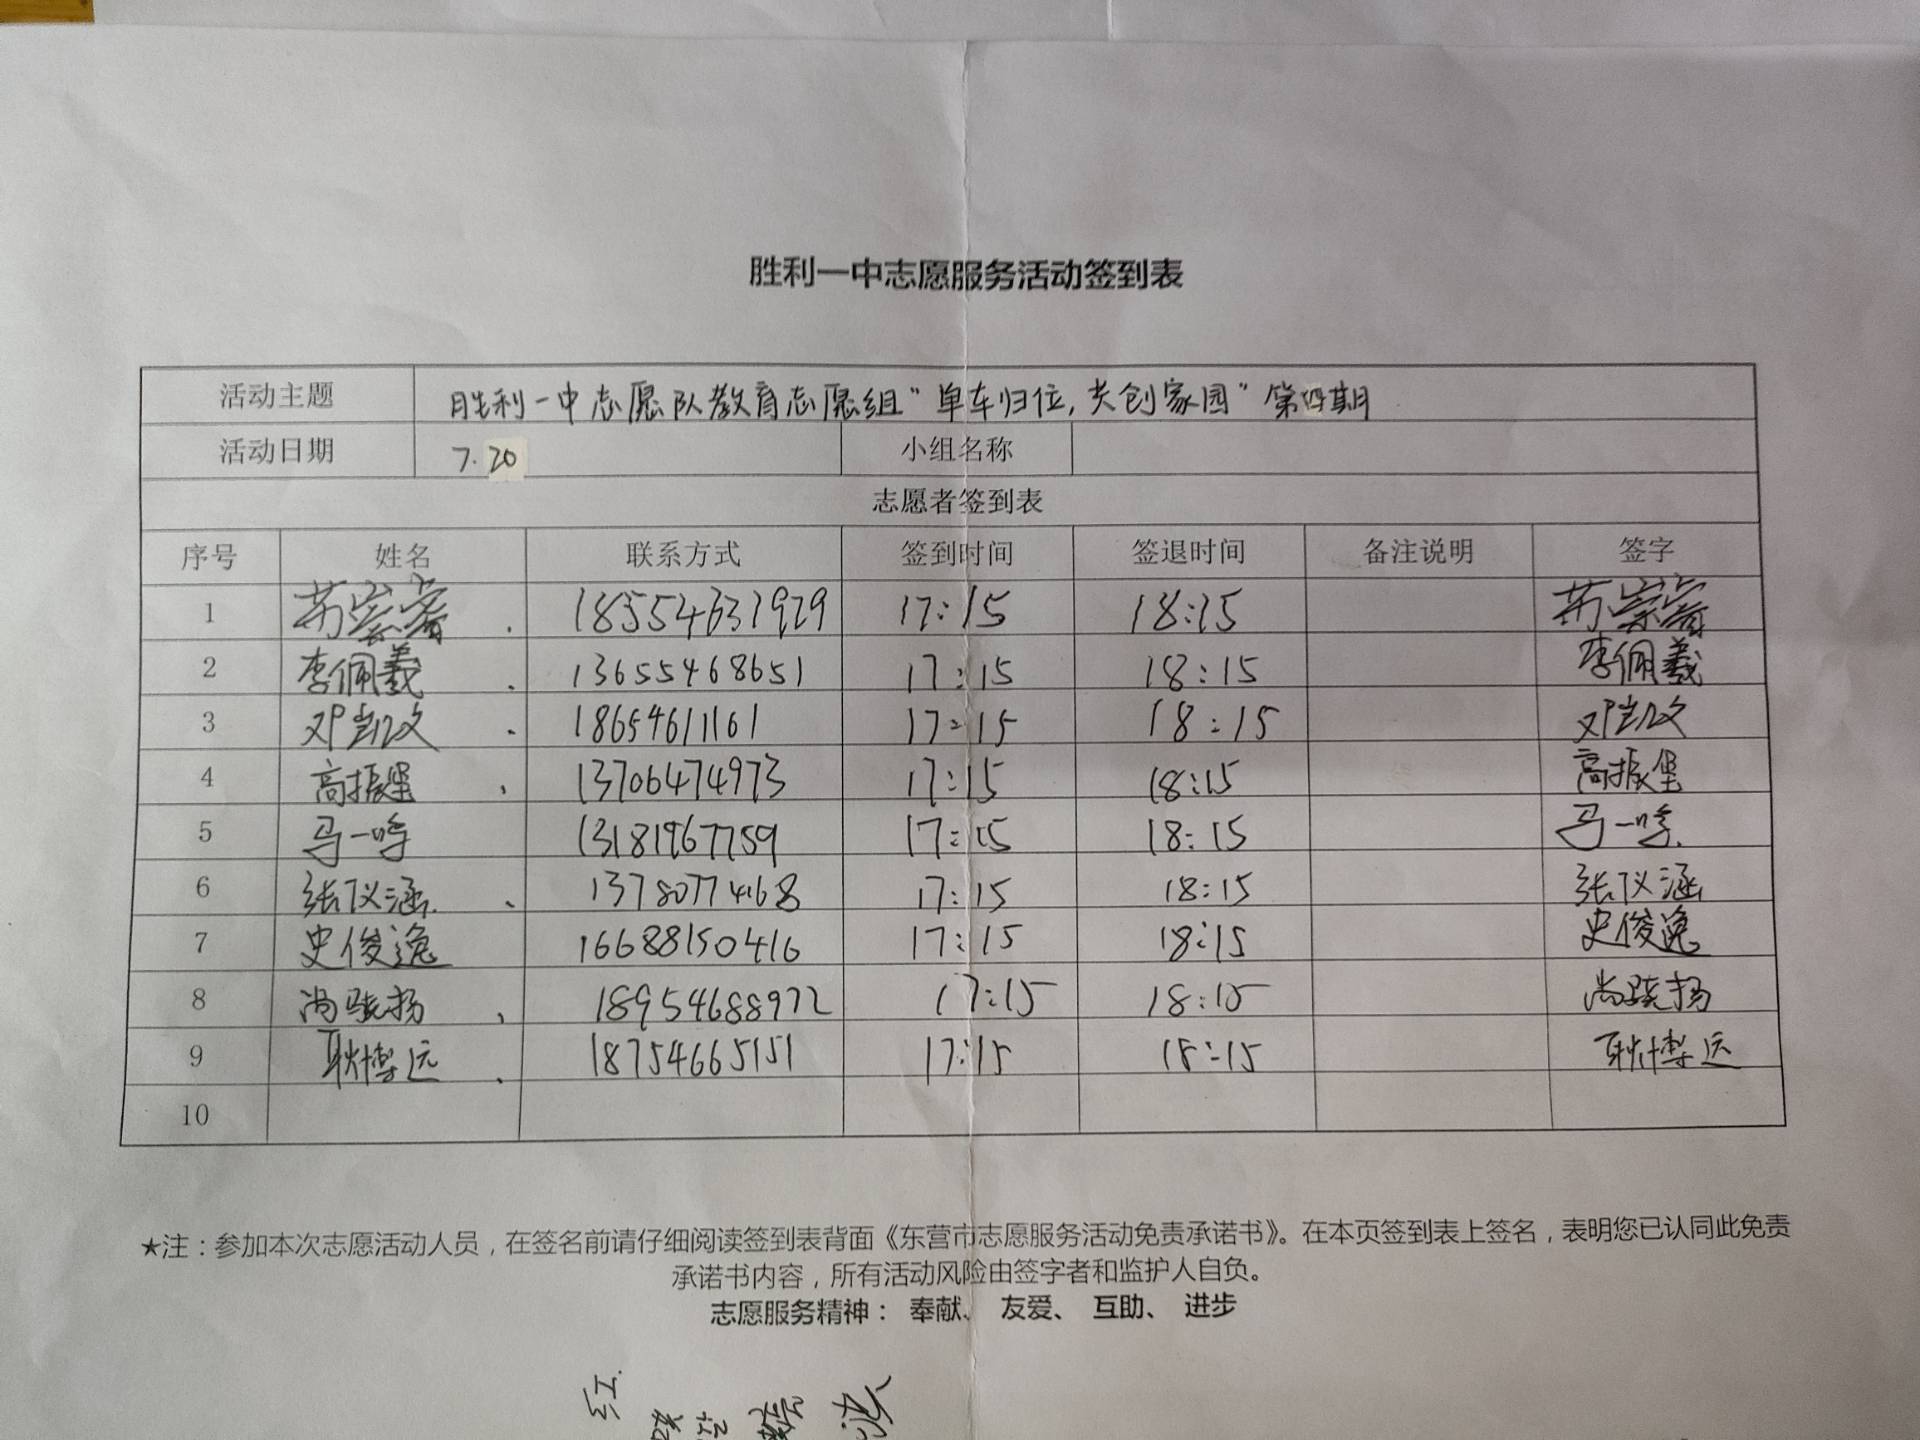 胜利一中志愿服务活动签到表
活动主题 胜利一中志愿队教育志愿组“单车归位,共创家园”第四期
活动日期 7.20 小组名称
志愿者签到表
序号 姓名 联系方式 签到时间 签退时间 备注说明 签字
1 苏崇睿 18554631929 17:15 18:15 苏崇睿
2 李佩羲 13655468651 17:15 18:15 李佩羲
3 邓凯文 18654611161 17:15 18:15 邓凯文
4 高振堡 13706474973 17:15 18:15 高振堡
5 马一 13181967759 17:15 18:15 马一
6 张仪涵 13780774168 17:15 18:15 张仪涵
7 史俊逸 16688150416 17:15 18:15 史俊逸
8 尚骁扬 18954688972 17:15 18:15 尚骁扬
9 耿博远 18754665151 17:15 18:15 耿博远
10
★注：参加本次志愿活动人员，在签名前请仔细阅读签到表背面《东营市志愿服务活动免责承诺书》。在本页签到表上签名，表明您已认同此免责
承诺书内容，所有活动风险由签字者和监护人自负。
志愿服务精神： 奉献、 友爱、 互助、 进步